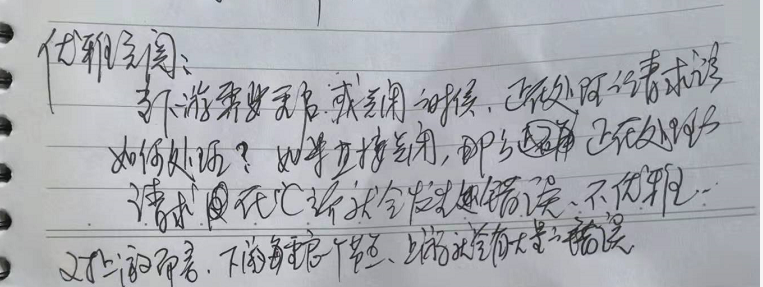 优雅关闭:
当下游需要重启或关闭的时候,正在处理的请求该
如何处理?如果直接关闭,那么 正在处理的
请求 在C端就会发生 错误、不优雅...
对上游而言,下游每重启一个节点、上游就会有大量的错误